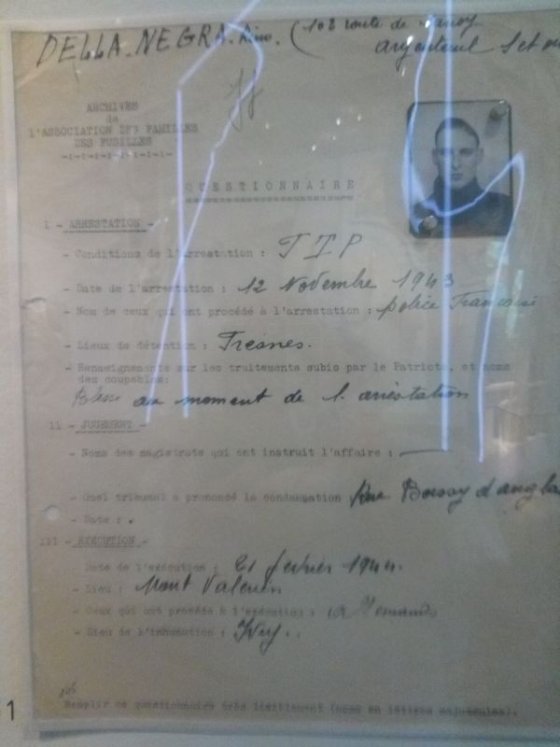 DELLA-NEGRA. Rino. (108 route de
argenteuil S et
ARCHIVES
de
L'ASSOCIATION DES FAMILLES
DES FUSILLES
QUESTIONNAIRE
I - ARRESTATION -
- Conditions de l'arrestation : F T P
- Date de l'arrestation : 12 Novembre 1943
- Nom de ceux qui ont procédé à l'arrestation : police Francaise
- Lieux de détention : Fresnes.
- Renseignements sur les traitements subis par le Patriote, et noms
des coupables:
au moment de l'arrestation
II - JUGEMENT -
- Noms des magistrats qui ont instruit l'affaire :
- Quel tribunal a prononcé la condamnation Rue Boissy d'angla
- Date :
III - EXECUTION -
Date de l'exécution : 21 février 1944.
- Lieu : Mont Valerien
- Ceux qui ont procédé à l'exécution :
- Lieu de l'inhumation : Ivry.
Remplir ce questionnaire très lisiblement (noms en lettres majuscules).
1